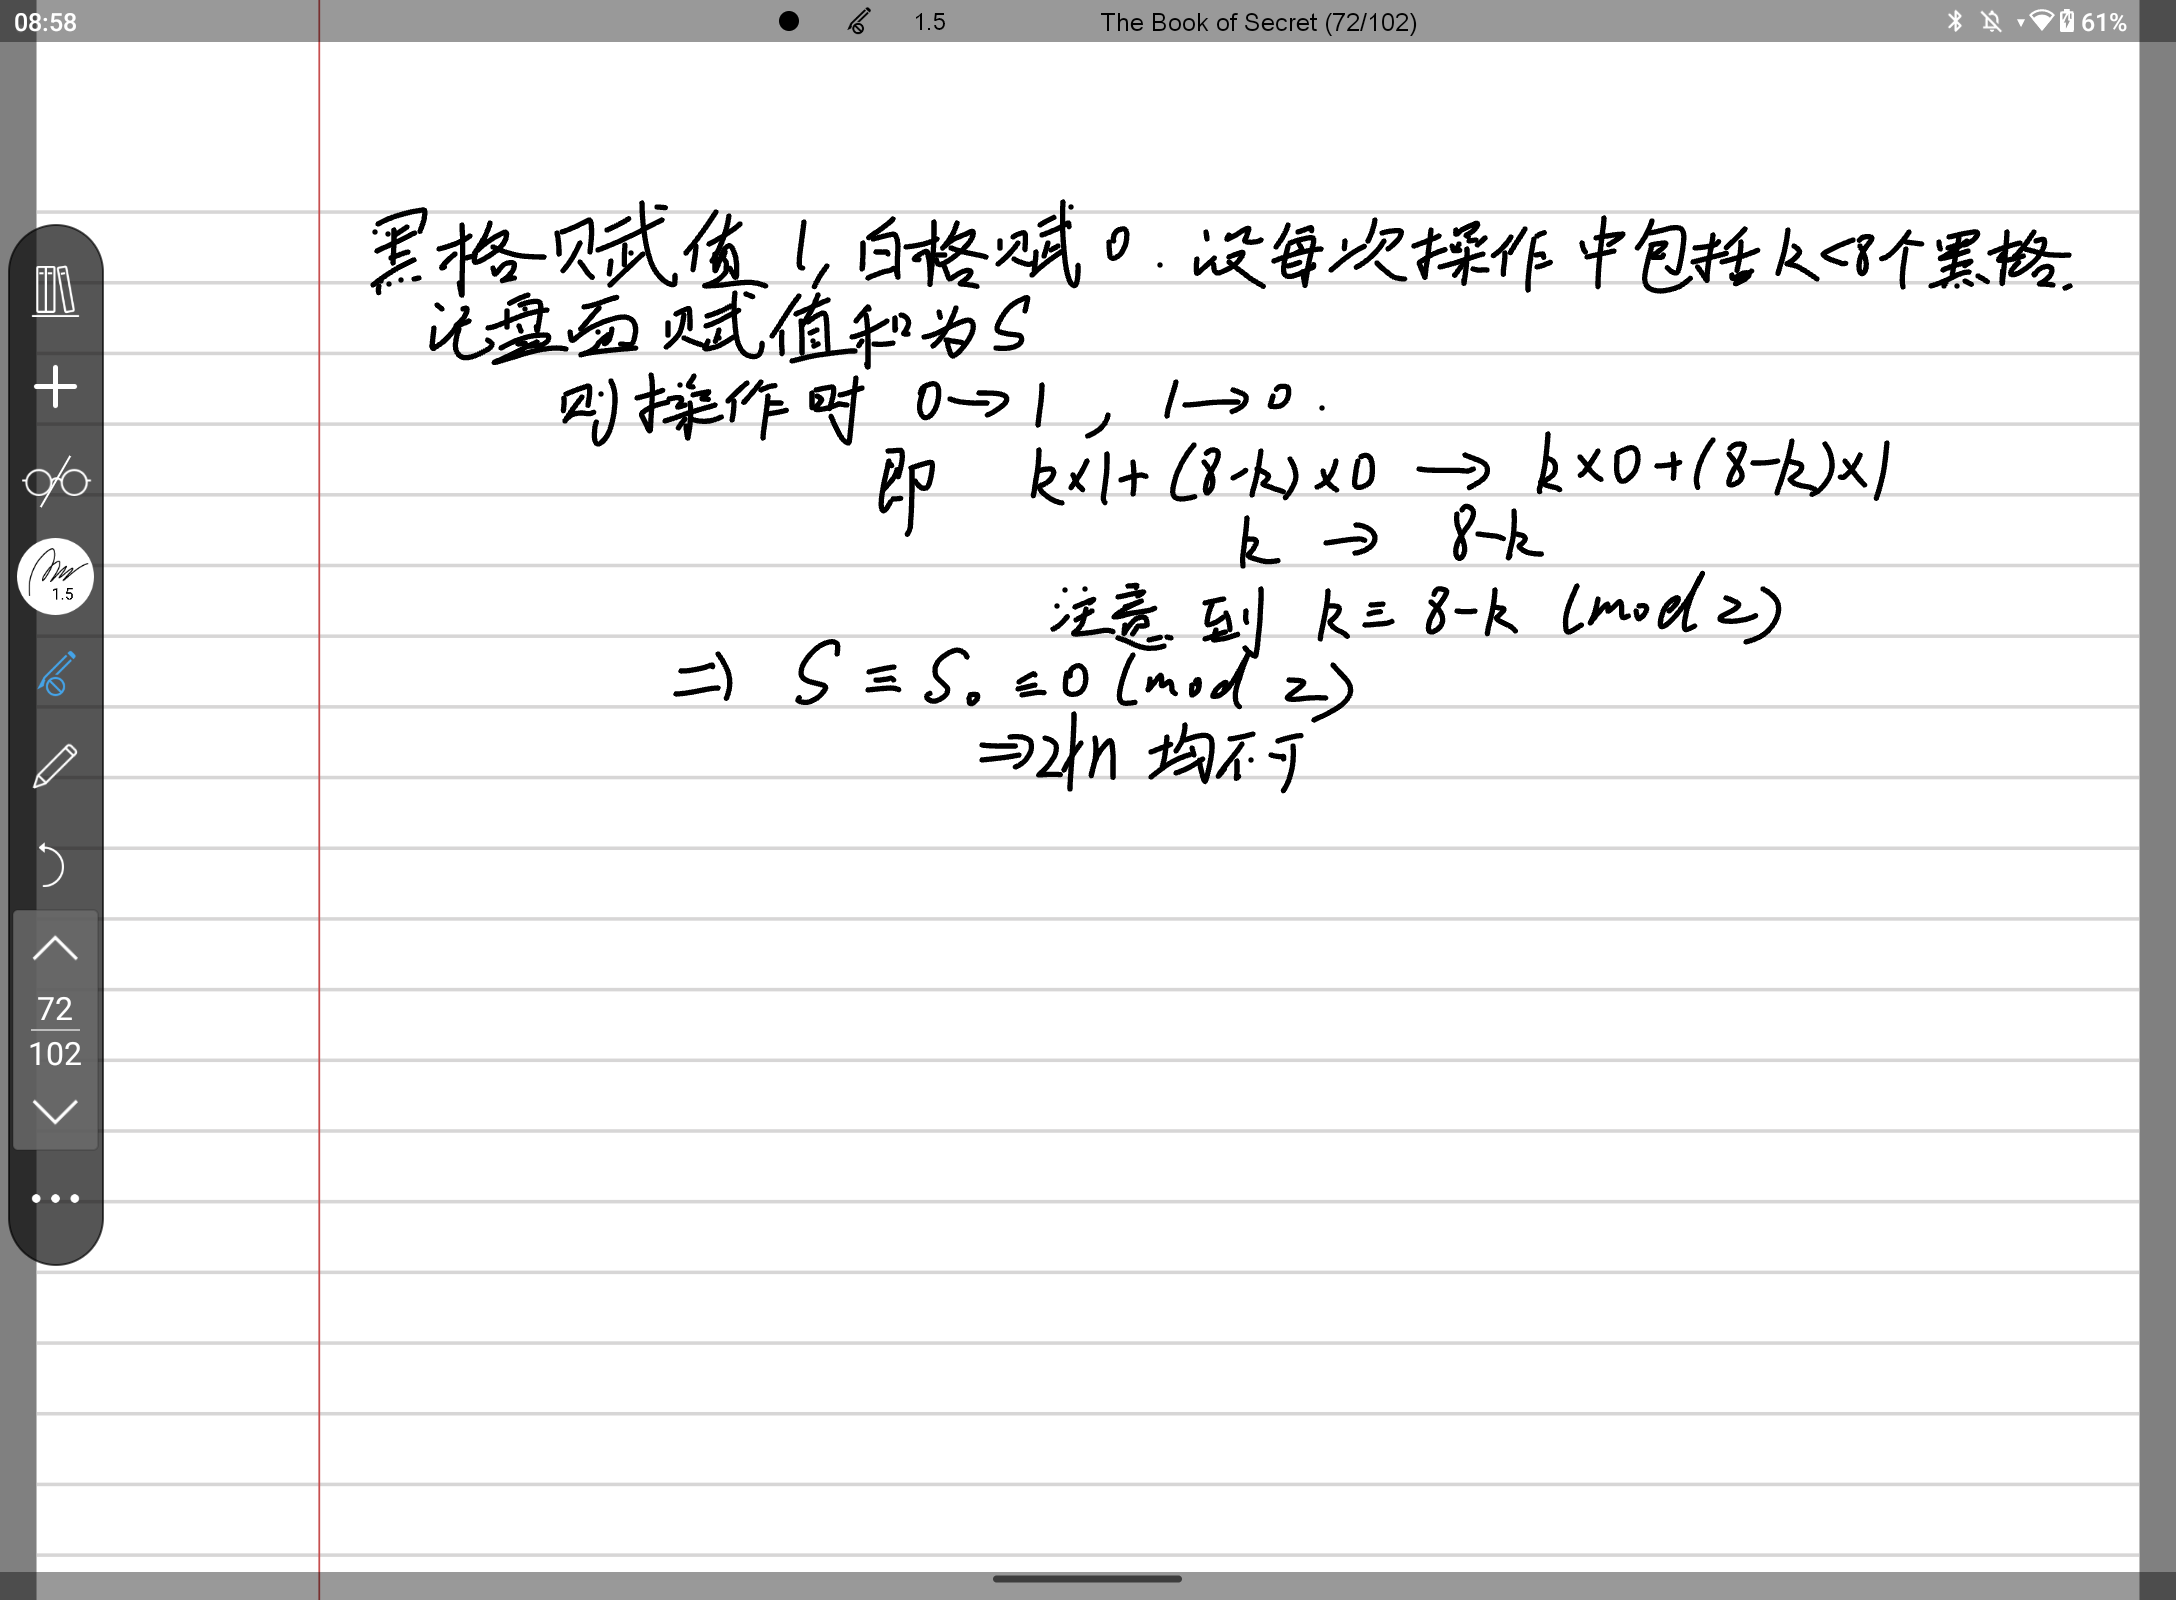 08:58
1.5
The Book of Secret (72/102)
61%
黑格赋值 1, 白格赋 0. 设每次操作中包括 k<8个黑格.
记盘面赋值和为 S
则操作时 0→1 , 1→0 .
即 k×1+(8-k)×0 → k×0+(8-k)×1
k → 8-k
注意到 k≡8-k (mod 2)
⇒ S≡S₀≡0 (mod 2)
⇒2∤n 均不可
1.5
72
102